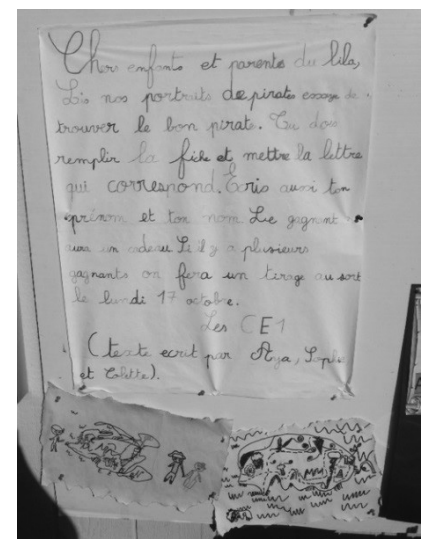 Chers enfants et parents du lila,
Lis nos portraits de pirates essaye de
trouver le bon pirate. Tu dois
remplir la fiche et mettre la lettre
qui correspond. Écris aussi ton
prénom et ton nom Le gagnant
aura un cadeau Si il y a plusieurs
gagnants on fera un tirage au sort
le lundi 17 octobre.
Les CE1
(texte ecrit par Aya, Sophie
et Colette).